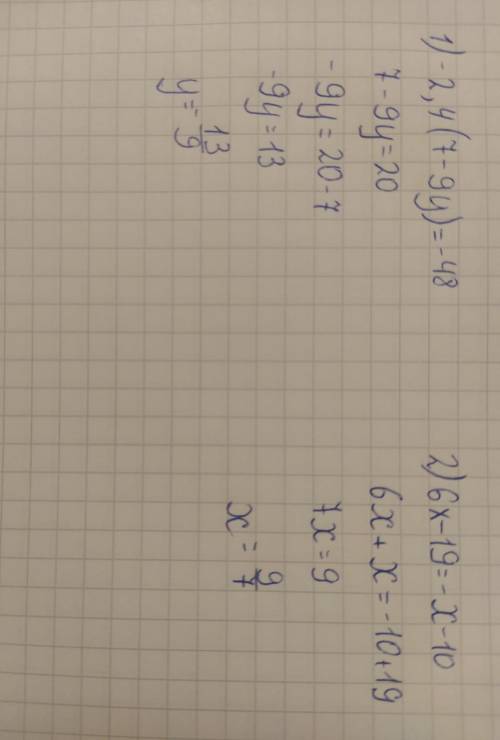 1) -2,4(7-9y)=-48
7-9y=20
-9y=20-7
-9y=13
y=-13/9
2) 6x-19=-x-10
6x+x=-10+19
7x=9
x=9/7